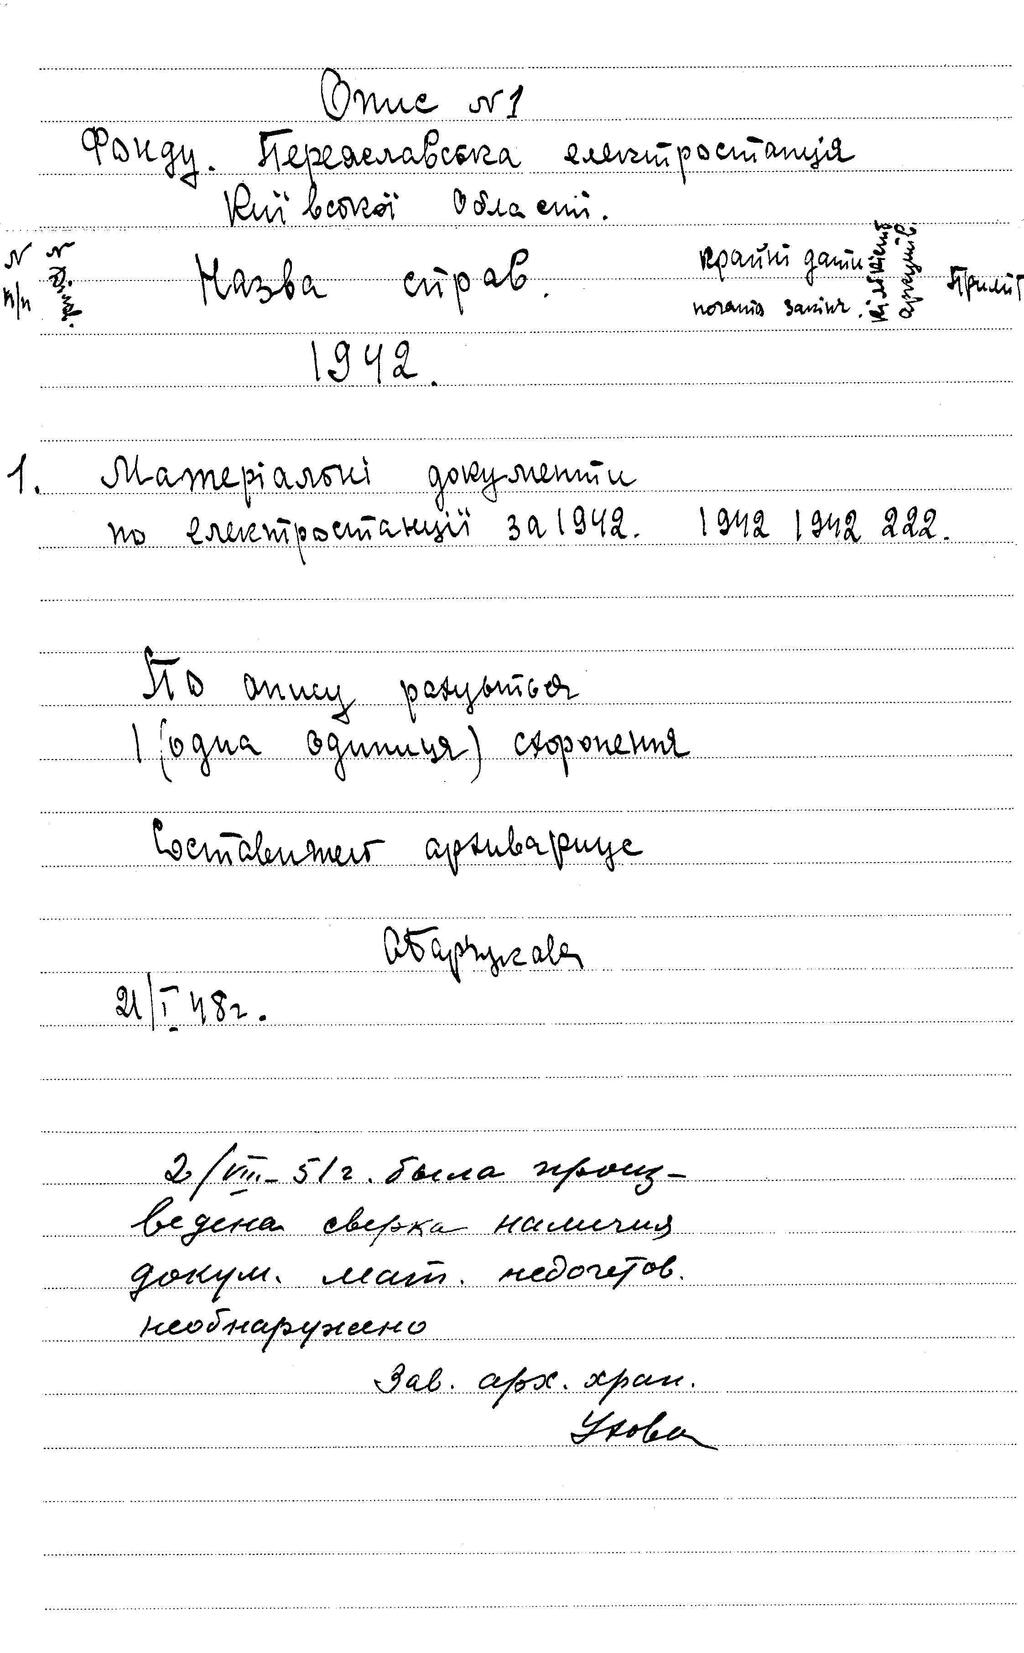 Опис № 1
Фонду. Переяславська електростанція
Київської області.
№ п/п № Назва справ. крайні дати початв закінч. кількість аркушів. Приміт
1942.
1. Матеріальні документи
по електростанції за 1942. 1942 1942 222.
По опису рахується
1 (одна одиниця) схоронення
Составитель архивариус
21/I 48г.
2/VIII-51г. была произ-
ведена сверка наличия
докум. мат. недочетов.
необнаружено
Зав. арх. хран.
Ухова